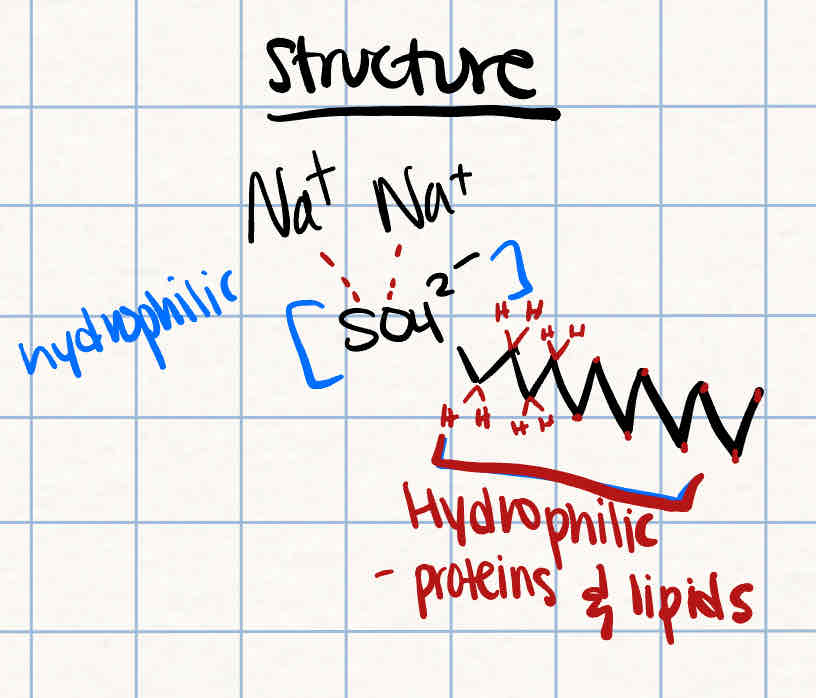 Structure
Na⁺ Na⁺
hydrophilic
[SO4²⁻]
H H
H H
H H
H H
Hydrophilic
- proteins & lipids